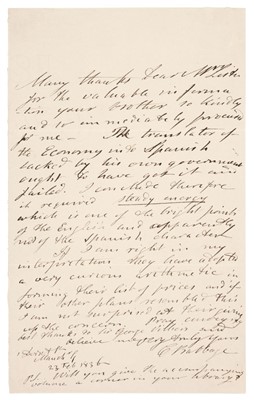 Many thanks Dear Mr
for the valuable informa
tion your brother so kindly
and so immediately procured
for me — The translator of
the Economy into Spanish
backed by his own government
ought to have got it
failed. I conclude therefore
it required steady energy
which is one of the bright points
of the English and apparently
not of the Spanish character
If I am right in my
interpretation they have adopted
a very curious arithmetic in
forming their list of prices and if
their other plans resembled this
I am not surprised at their giving
up the concern. Pray convey
best thanks to Sir George
believe me very truly Yours
C Babbage
Dorset St
Manch Sq
23 Feb 1836
PS. Will you give the accompanying
volume a corner in your library